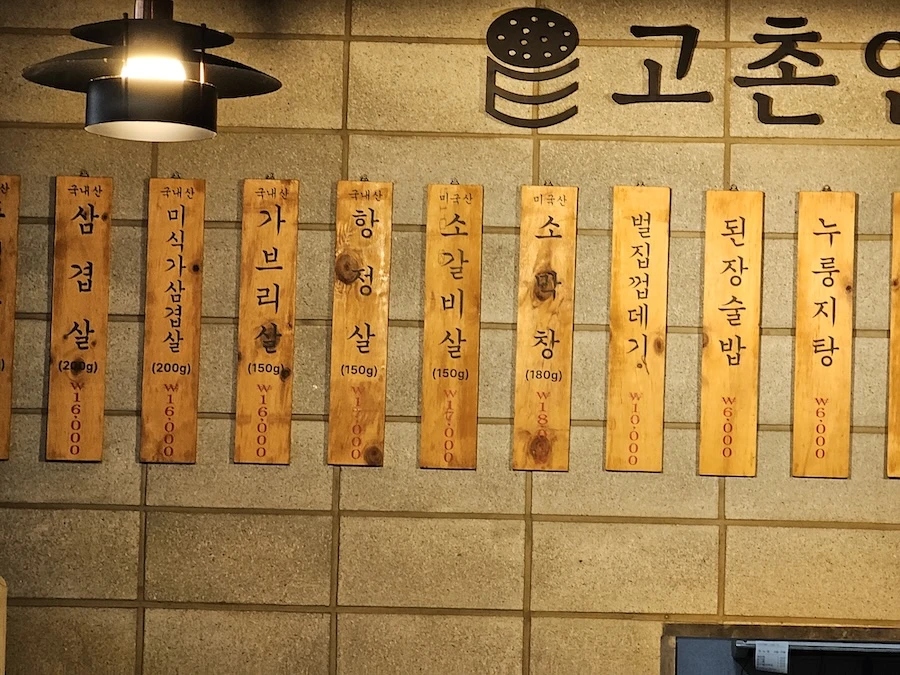 고촌
국내산
삼겹살
(200g)
₩16.000
국내산
미식가삼겹살
(200g)
₩16.000
국내산
가브리살
(150g)
₩16.000
국내산
항정살
(150g)
₩17.000
미국산
소갈비살
(150g)
₩17.000
미국산
소막창
(180g)
벌집껍데기
₩10.000
된장술밥
₩6.000
누룽지탕
₩6.000